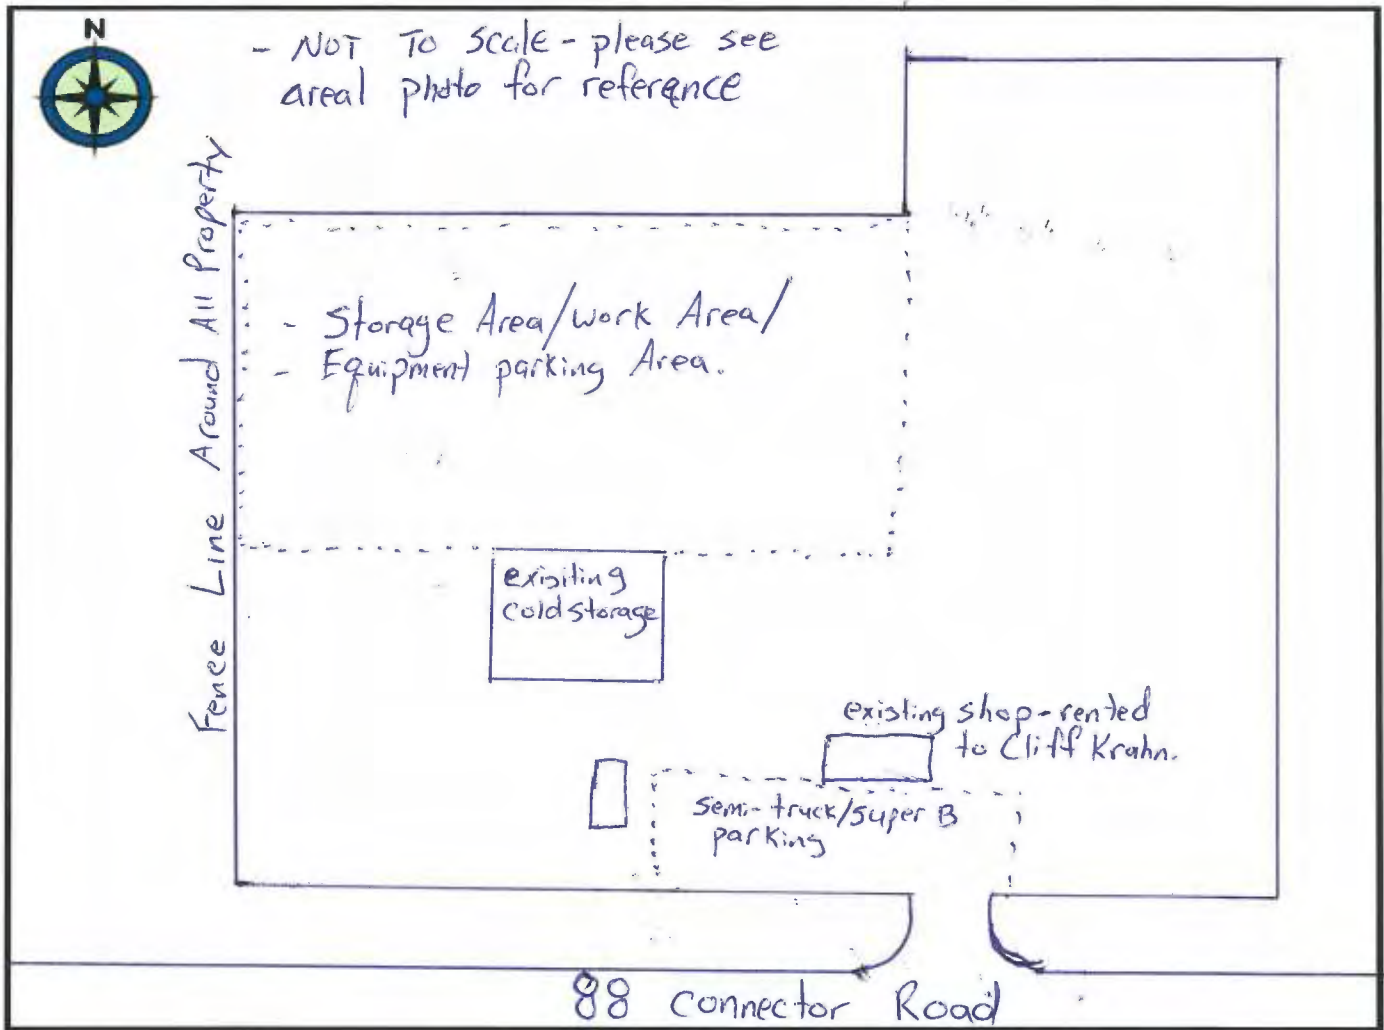 N
- NOT TO scale - please see
areal photo for reference
Fence Line Around All Property
- Storage Area/work Area/
- Equipment parking Area.
exisiting
cold storage
existing shop-rented
to Cliff Krahn.
semi-truck/super B
parking
88 connector Road